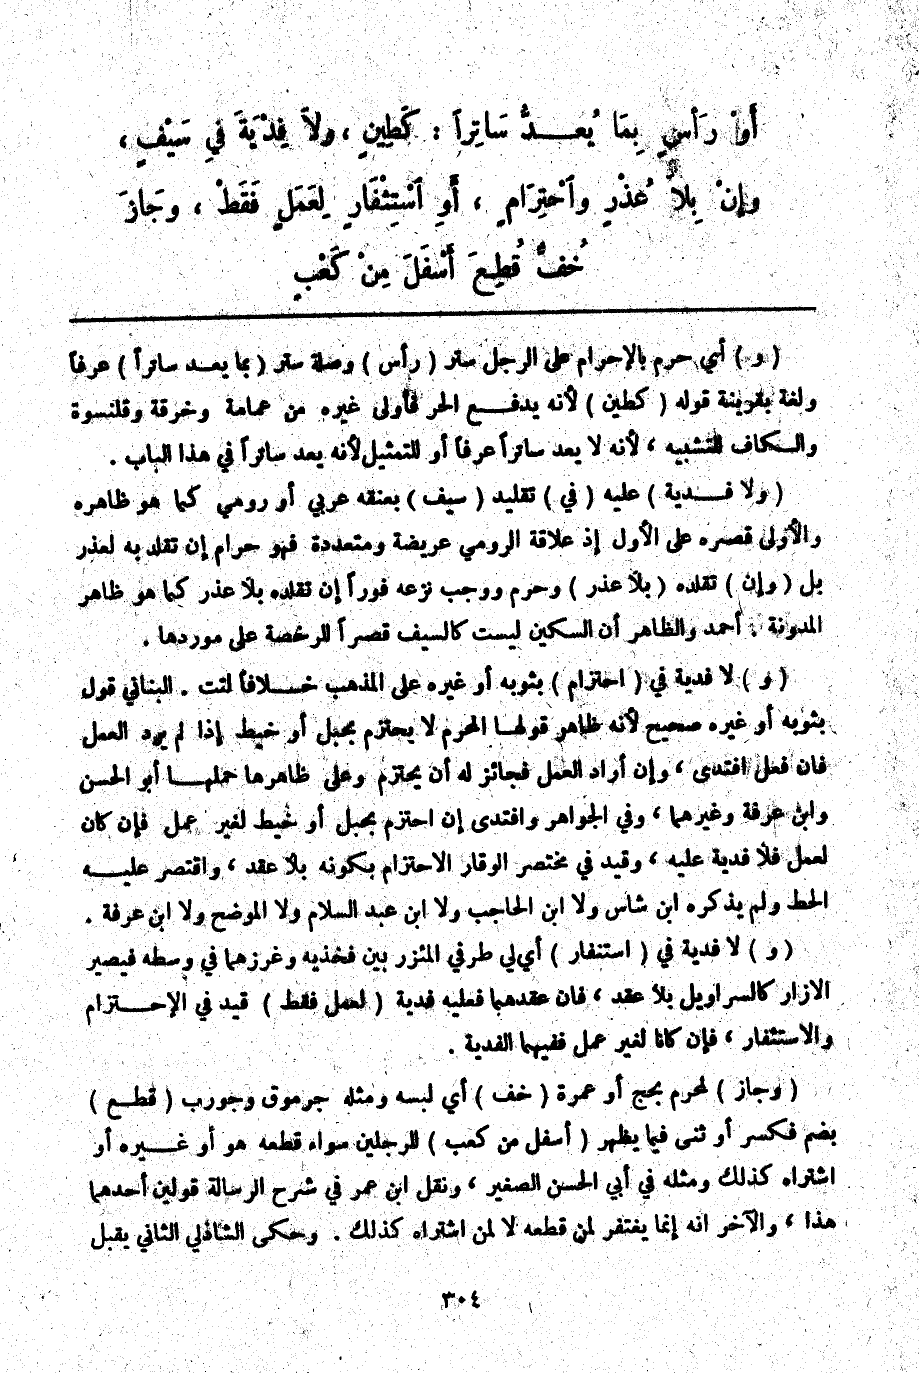 أَوْ رَأْسٍ بِمَا يُعَــدُّ سَاتِراً : كَطِينٍ ، وَلاَ فِدْيَةَ فِي سَيْفٍ ،
وإِنْ بِلاَ عُذْرٍ واَحْتِزَامٍ ، أَوِ اَسْتِثْفَارٍ لِعَمَلٍ فَقَطْ ، وجَازَ
خُفٌّ قُطِعَ أَسْفَلَ مِنْ كَعْبٍ
( و ) أي حرم بالإحرام على الرجل ستر ( رأس ) وصلة ستر ( بما يعــد ساتراً ) عرفاً
ولغة بقرينة قوله ( كطين ) لأنه يدفــع الحر فأولى غيره من عمامة وخرقة وقلنسوة
والــكاف للتشبيه ، لأنه لا يعد ساتراً عرفاً أو للتمثيل لأنه يعد ساتراً في هذا الباب .
( ولا فــدية ) عليه ( في ) تقليد ( سيف ) بعنقه عربي أو رومي كما هو ظاهره
والأولى قصره على الأول إذ علاقة الرومي عريضة ومتعددة فهو حرام إن تقلد به لعذر
بل ( وإن ) تقلده ( بلا عذر ) وحرم ووجب نزعه فوراً إن تقلده بلا عذر كما هو ظاهر
المدونة . أحمد والظاهر أن السكين ليست كالسيف قصراً للرخصة على موردها .
( و ) لا فدية في ( احتزام ) بثوبه أو غيره على المذهب خــلافاً لتت . البناني قول
بثوبه أو غيره صحيح لأنه ظاهر قولهـا المحرم لا يحتزم بحبل أو خيط إذا لم يرد العمل
فان فعل افتدى ، وإن أراد العمل فجائز له أن يحتزم وعلى ظاهرها حملهــا أبو الحسن
وابن عرفة وغيرهما ، وفي الجواهر وافتدى إن احتزم بحبل أو خيط لغير عمل فإن كان
لعمل فلا فدية عليه ، وقيد في مختصر الوقار الاحتزام بكونه بلا عقد ، واقتصر عليــه
الحط ولم يذكره ابن شاس ولا ابن الحاجب ولا ابن عبد السلام ولا الموضح ولا ابن عرفة .
( و ) لا فدية في ( استثفار ) أي لي طرفي المئزر بين فخذيه وغرزهما في وسطه فيصير
الازار كالسراويل بلا عقد ، فان عقدهما فعليه فدية ( لعمل فقط ) قيد في الإحــتزام
والاستثفار ، فإن كانا لغير عمل ففيهما الفدية .
( وجاز ) لمحرم بحج أو عمرة ( خف ) أي لبسه ومثله جرموق وجورب ( قطــع )
بضم فكسر أو ثنى فيما يظهر ( أسفل من كعب ) للرجلين سواء قطعه هو أو غــيره أو
اشتراه كذلك ومثله في أبي الحسن الصغير ، ونقل ابن عمر في شرح الرسالة قولين أحدهما
هذا ، والآخر انه إنما يغتفر لمن قطعه لا لمن اشتراه كذلك . وحكى الشاذلي الثاني بقيل
٣٠٤